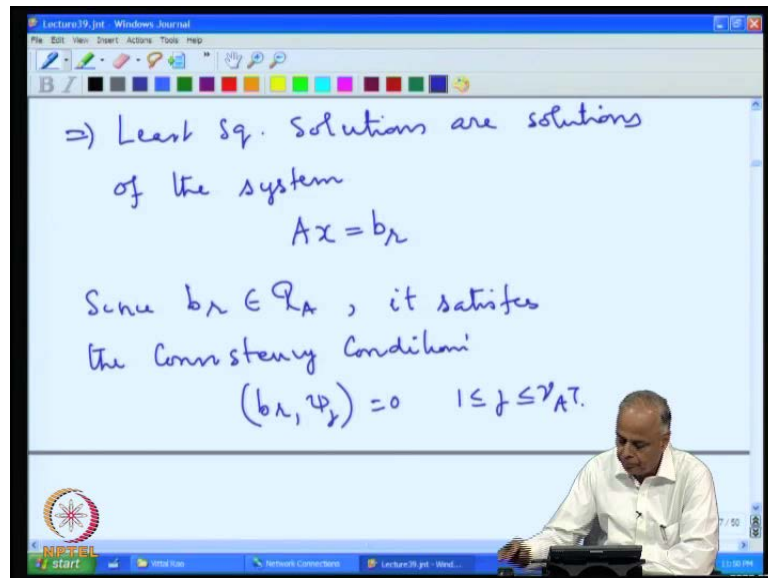 Lecture39.jnt - Windows Journal
File Edit View Insert Actions Tools Help
B I
⇒) Least Sq. Solutions are solutions
of the system
Ax = b_r
Since b_r ∈ R_A, it satisfies
the Consistency Condition
(b_r, ψ_j) = 0 1 ≤ j ≤ ν_{A^T}.
7 / 50
NPTEL
start Vittal Rao Network Connections Lecture39.jnt - Wind... 11:50 PM